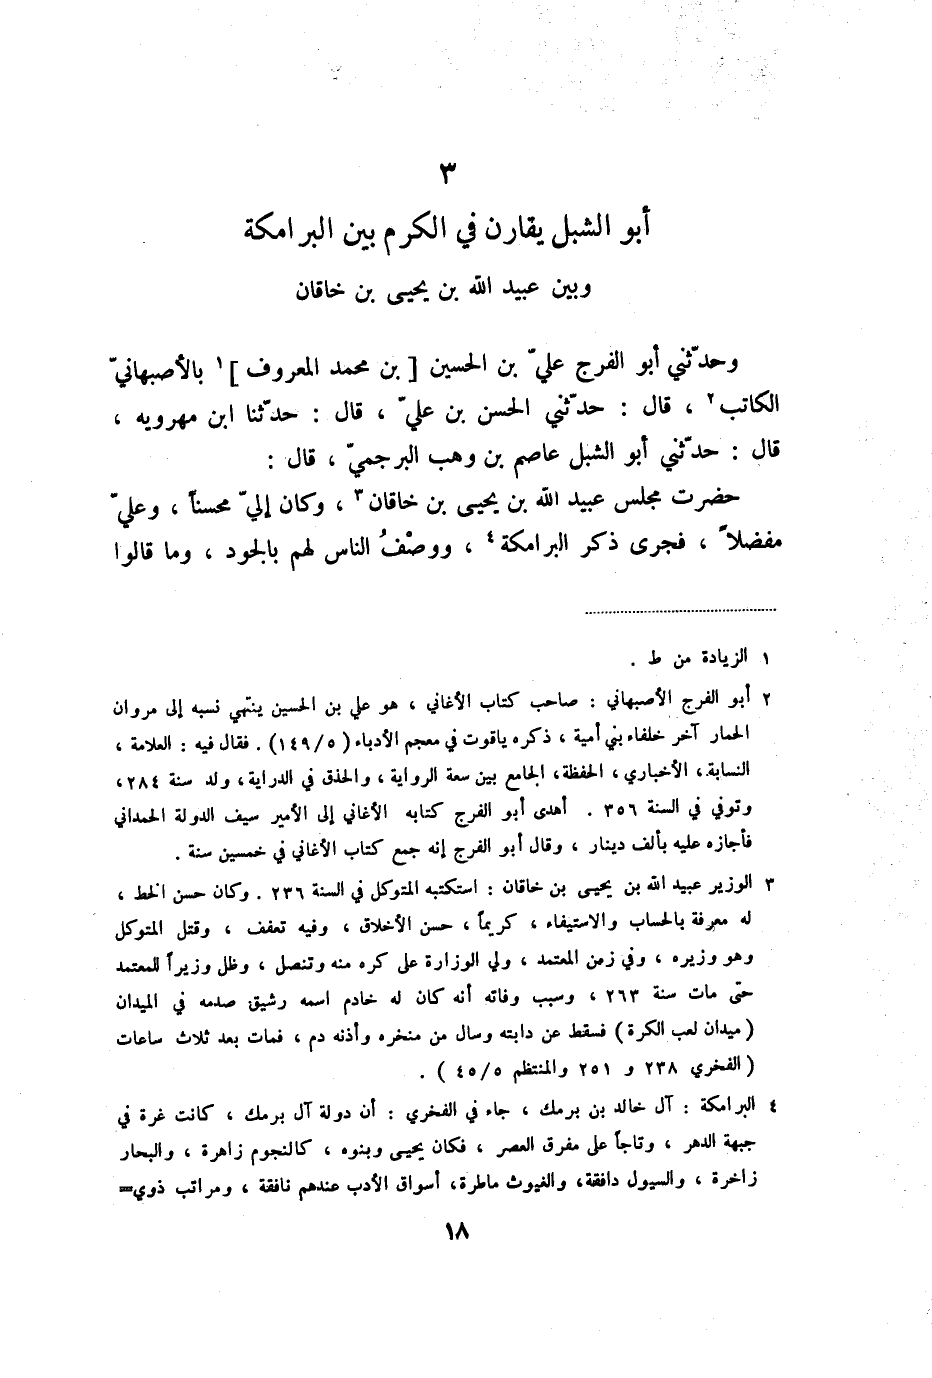 ٣
أبو الشبل يقارن في الكرم بين البرامكة
وبين عبيد الله بن يحيى بن خاقان
وحدّثني أبو الفرج عليّ بن الحسين [ بن محمد المعروف ]١ بالأصبهانيّ
الكاتب٢ ، قال : حدّثني الحسن بن عليّ ، قال : حدّثنا ابن مهرويه ،
قال : حدّثني أبو الشبل عاصم بن وهب البرجميّ ، قال :
حضرت مجلس عبيد الله بن يحيى بن خاقان٣ ، وكان إليّ محسناً ، وعليّ
مفضلاً ، فجرى ذكر البرامكة٤ ، ووصْفُ الناس لهم بالجود ، وما قالوا
١ الزيادة من ط .
٢ أبو الفرج الأصبهاني : صاحب كتاب الأغاني ، هو علي بن الحسين ينتهي نسبه إلى مروان
الحمار آخر خلفاء بني أمية ، ذكره ياقوت في معجم الأدباء ( ١٤٩/٥ ) . فقال فيه : العلامة ،
النسابة ، الأخباري ، الحفظة ، الجامع بين سعة الرواية ، والحذق في الدراية ، ولد سنة ٢٨٤ ،
وتوفي في السنة ٣٥٦ . أهدى أبو الفرج كتابه الأغاني إلى الأمير سيف الدولة الحمداني
فأجازه عليه بألف دينار ، وقال أبو الفرج إنه جمع كتاب الأغاني في خمسين سنة .
٣ الوزير عبيد الله بن يحيى بن خاقان : استكتبه المتوكل في السنة ٢٣٦ . وكان حسن الخط ،
له معرفة بالحساب والاستيفاء ، كريماً ، حسن الأخلاق ، وفيه تعفف ، وقتل المتوكل
وهو وزيره ، وفي زمن المعتمد ، ولي الوزارة على كره منه وتنصل ، وظل وزيراً للمعتمد
حتّى مات سنة ٢٦٣ ، وسبب وفاته أنه كان له خادم اسمه رشيق صدمه في الميدان
( ميدان لعب الكرة ) فسقط عن دابته وسال من منخره وأذنه دم ، فمات بعد ثلاث ساعات
( الفخري ٢٣٨ و ٢٥١ والمنتظم ٤٥/٥ ) .
٤ البرامكة : آل خالد بن برمك ، جاء في الفخري : أن دولة آل برمك ، كانت غرة في
جبهة الدهر ، وتاجاً على مفرق العصر ، فكان يحيى وبنوه ، كالنجوم زاهرة ، والبحار
زاخرة ، والسيول دافقة، والغيوث ماطرة، أسواق الأدب عندهم نافقة ، ومراتب ذوي=
١٨